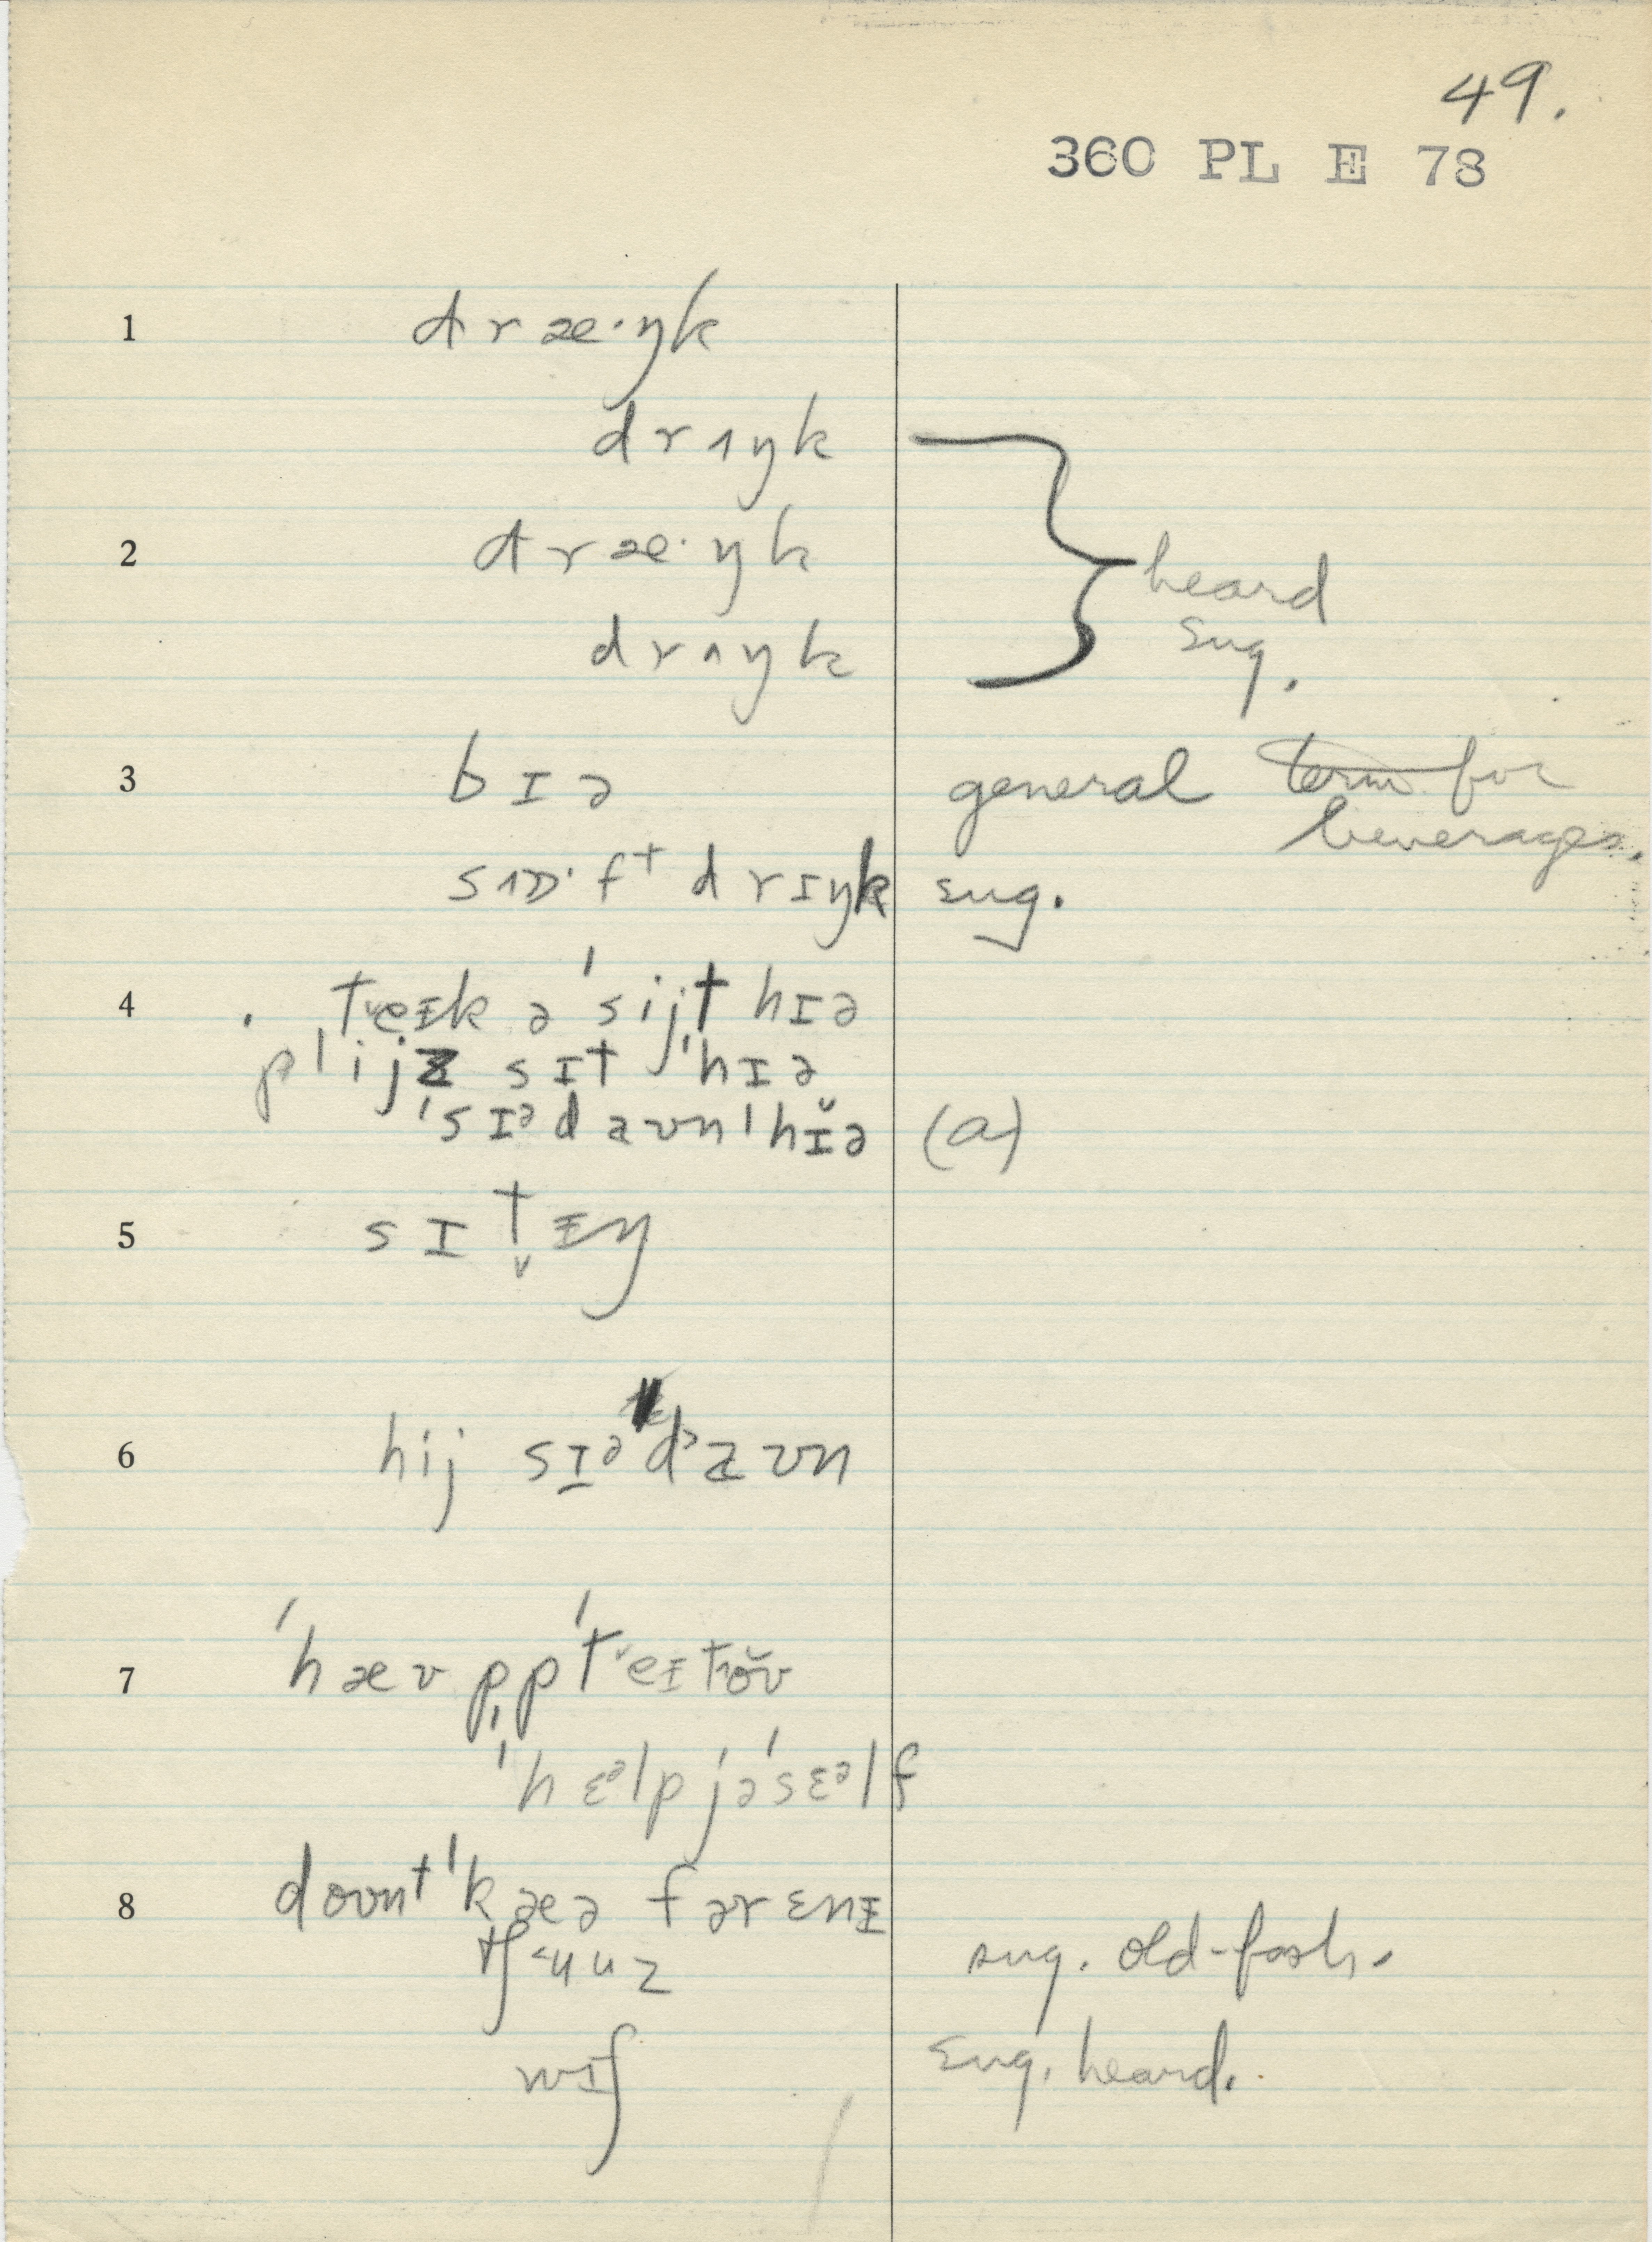 49.
360 PL E 78
1 dræ·ŋk
drʌŋk
2 dræ·ŋk
drʌŋk
heard
sug.
3 bɪə general term for
beverages.
sʌɒ·ft drɪŋk sug.
4 tᵛeɪk ə ˈsijt hɪə
plijz sɪt ˈhɪə
ˈsɪᵊdaʊn ˈhɪ̆ə (a)
5 sɪt̬ɪŋ
6 hij sɪᵊdᵊaʊn
7 ˈhæv p̩pˈtᵛeɪtoʊ
ˈhɛᵊlp jəˈsɛᵊlf
8 doʊntˈkæə fərɛnɪ
tʃᶴuuz sug. old-fash.
wɪʃ sug. heard.